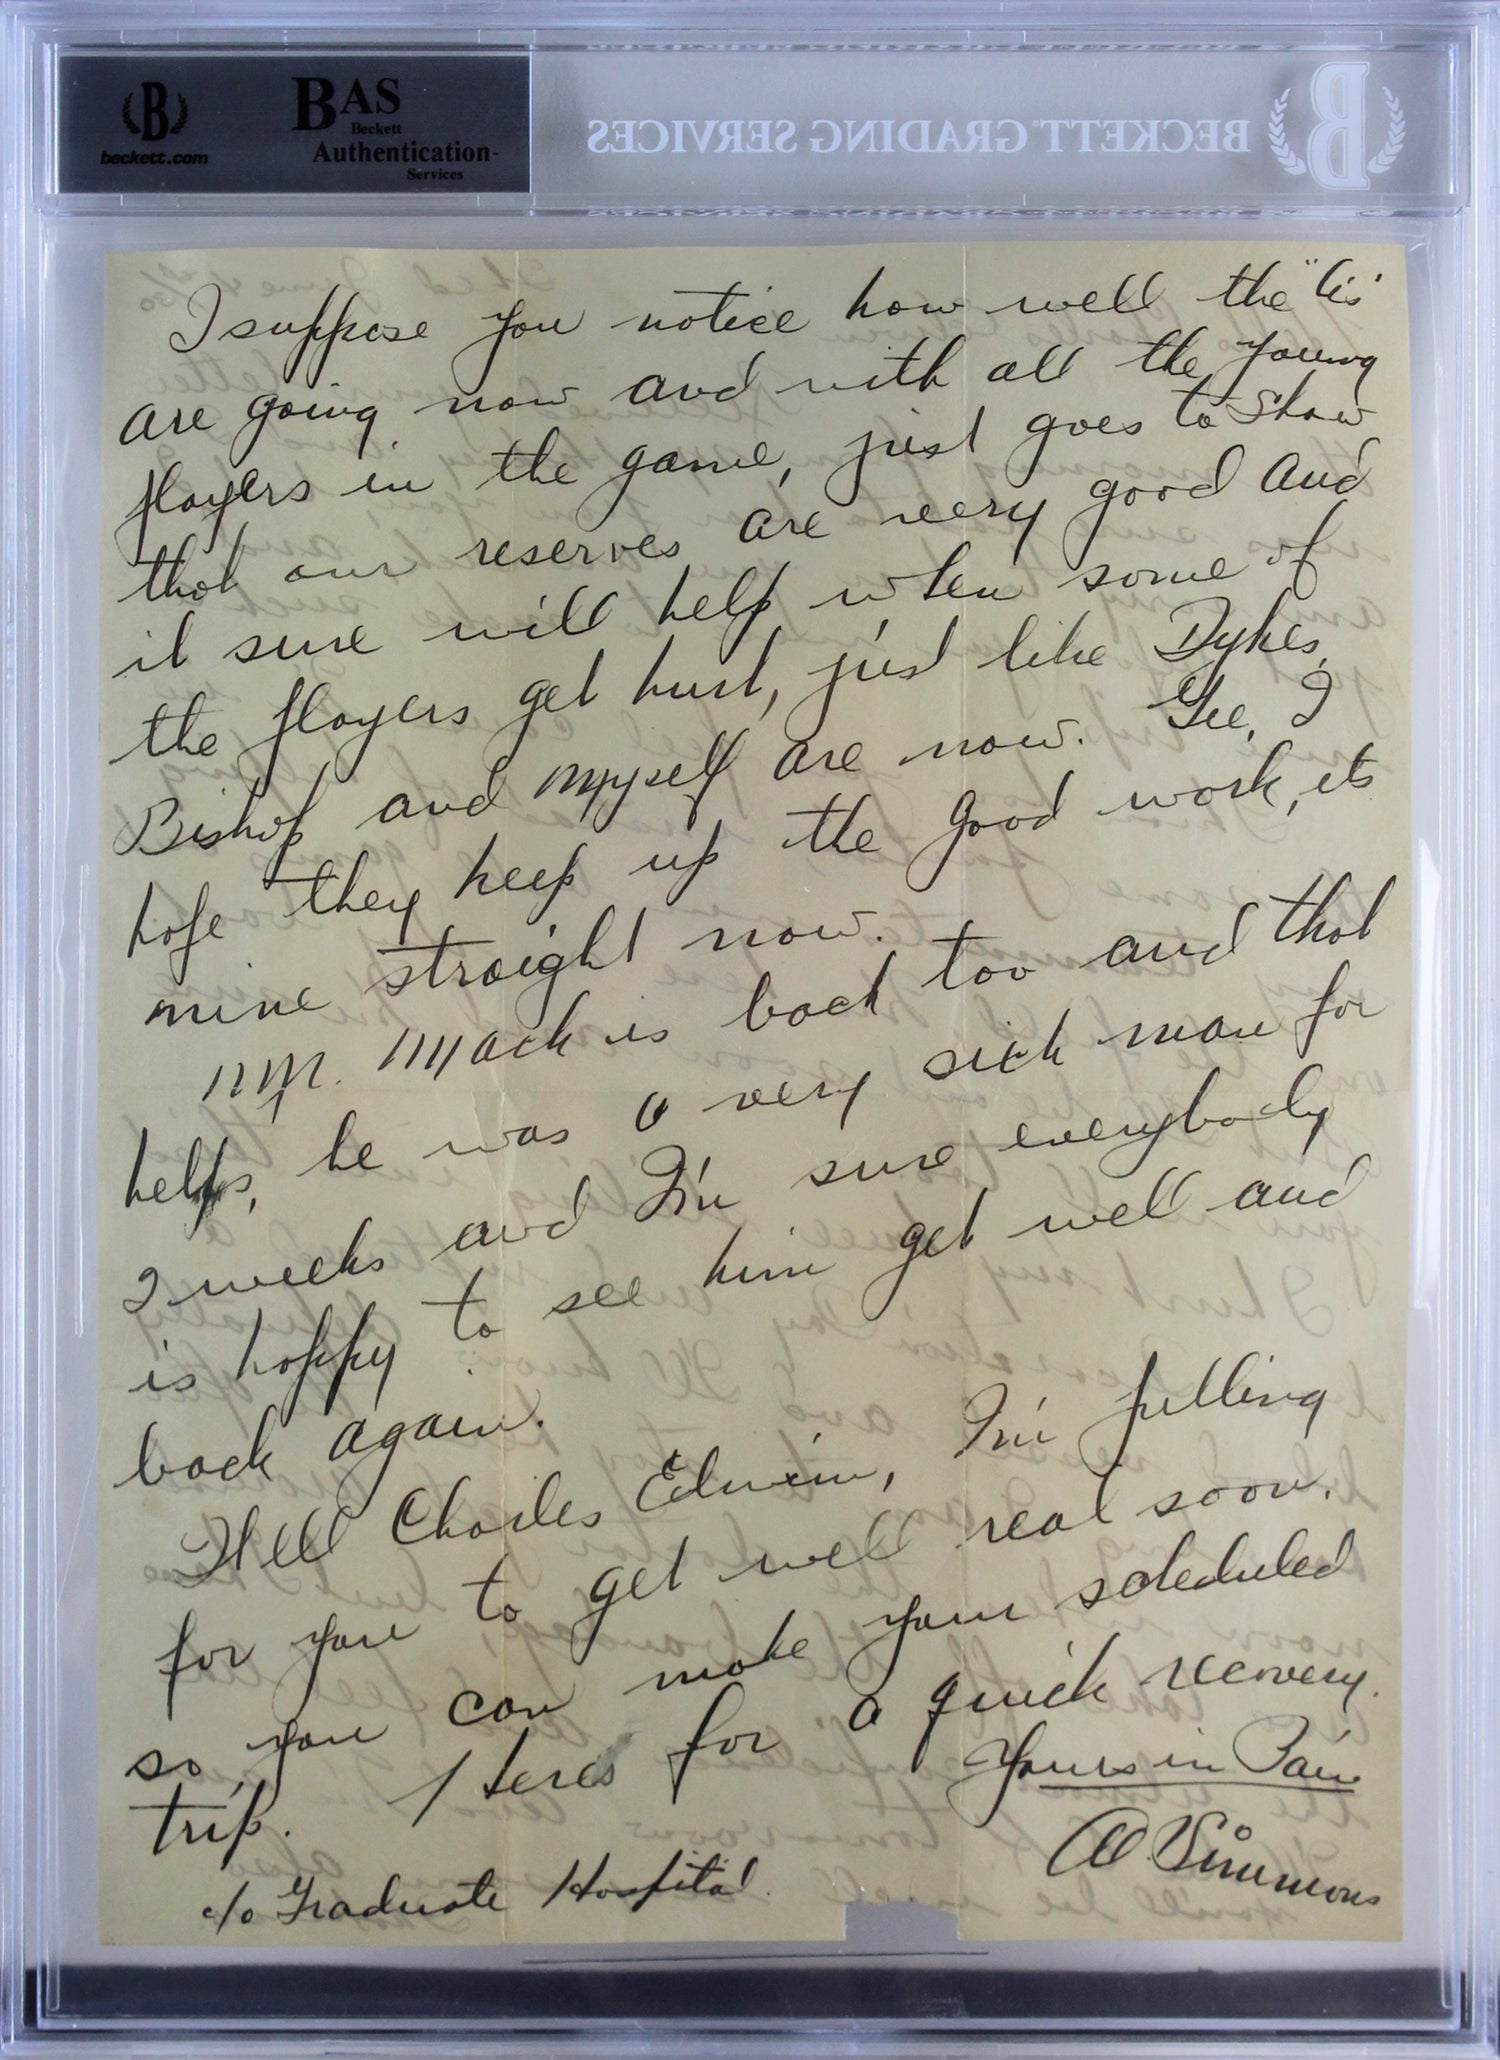 B
beckett.com
BAS
Beckett
Authentication
Services
BECKETT GRADING SERVICES
B
I suppose you notice how well the "A's"
are going now and with all the young
players in the game, just goes to show
that our reserves are very good and
it sure will help when some of
the players get hurt, just like Dykes,
Bishop and myself are now. Gee, I
hope they keep up the good work, its
nine straight now.
Mr. Mack is back too and that
helps, he was a very sick man for
2 weeks and I'm sure everybody
is happy to see him get well and
back again.
Well Charles Edwin, I'm pulling
for you to get well real soon,
so you can make your scheduled
trip. Heres for a quick recovery.
Yours in Pain
Al. Simmons
c/o Graduate Hospital.